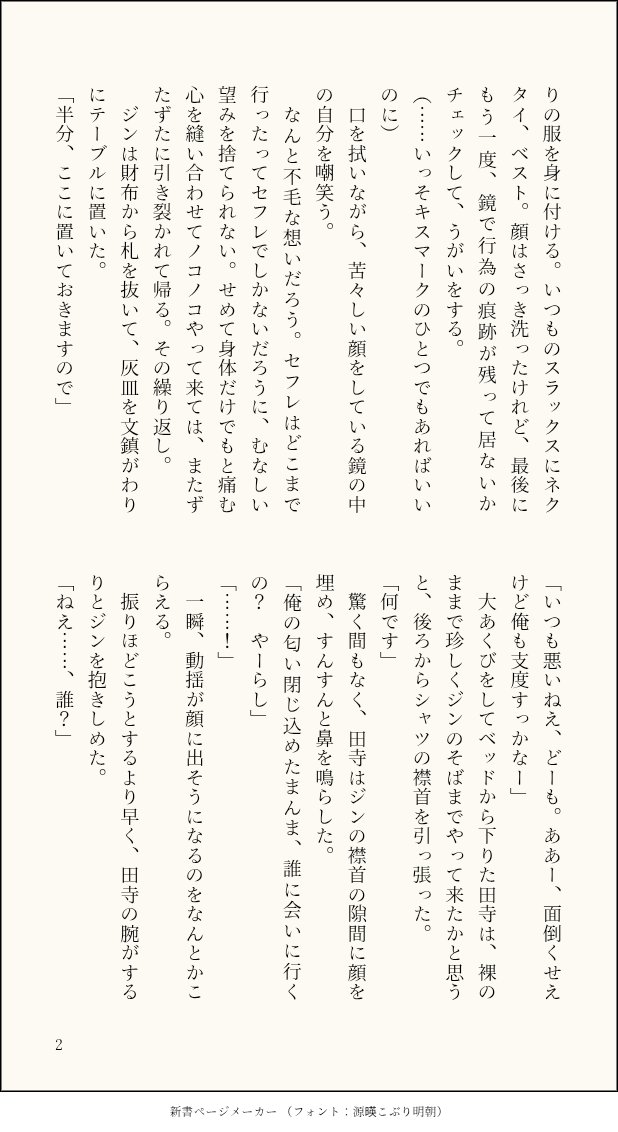 りの服を身に付ける。いつものスラックスにネク
タイ、ベスト。顔はさっき洗ったけれど、最後に
もう一度、鏡で行為の痕跡が残って居ないか
チェックして、うがいをする。
(……いっそキスマークのひとつでもあればいい
のに)
　口を拭いながら、苦々しい顔をしている鏡の中
の自分を嘲笑う。
　なんと不毛な想いだろう。セフレはどこまで
行ったってセフレでしかないだろうに、むなしい
望みを捨てられない。せめて身体だけでもと痛む
心を縫い合わせてノコノコやって来ては、またず
たずたに引き裂かれて帰る。その繰り返し。
　ジンは財布から札を抜いて、灰皿を文鎮がわり
にテーブルに置いた。
「半分、ここに置いておきますので」
「いつも悪いねえ、どーも。ああー、面倒くせえ
けど俺も支度すっかなー」
　大あくびをしてベッドから下りた田寺は、裸の
ままで珍しくジンのそばまでやって来たかと思う
と、後ろからシャツの襟首を引っ張った。
「何です」
　驚く間もなく、田寺はジンの襟首の隙間に顔を
埋め、すんすんと鼻を鳴らした。
「俺の匂い閉じ込めたまんま、誰に会いに行く
の？　やーらし」
「……！」
　一瞬、動揺が顔に出そうになるのをなんとかこ
らえる。
　振りほどこうとするより早く、田寺の腕がする
りとジンを抱きしめた。
「ねえ……、誰？」
2
新書ページメーカー（フォント：源暎こぶり明朝）